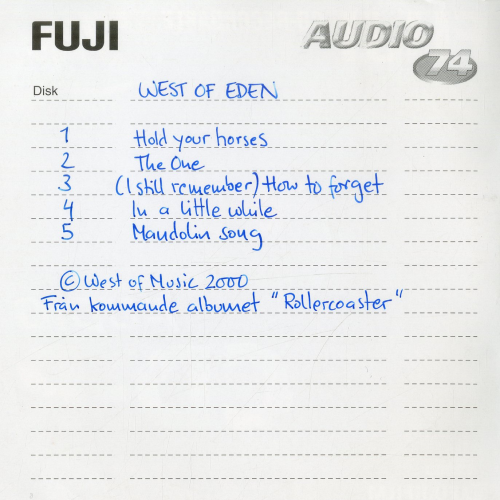 FUJI AUDIO 74
Disk WEST OF EDEN
1 Hold your horses
2 The One
3 (I still remember) How to forget
4 In a little while
5 Mandolin song
© West of Music 2000
Från kommande albumet "Rollercoaster"